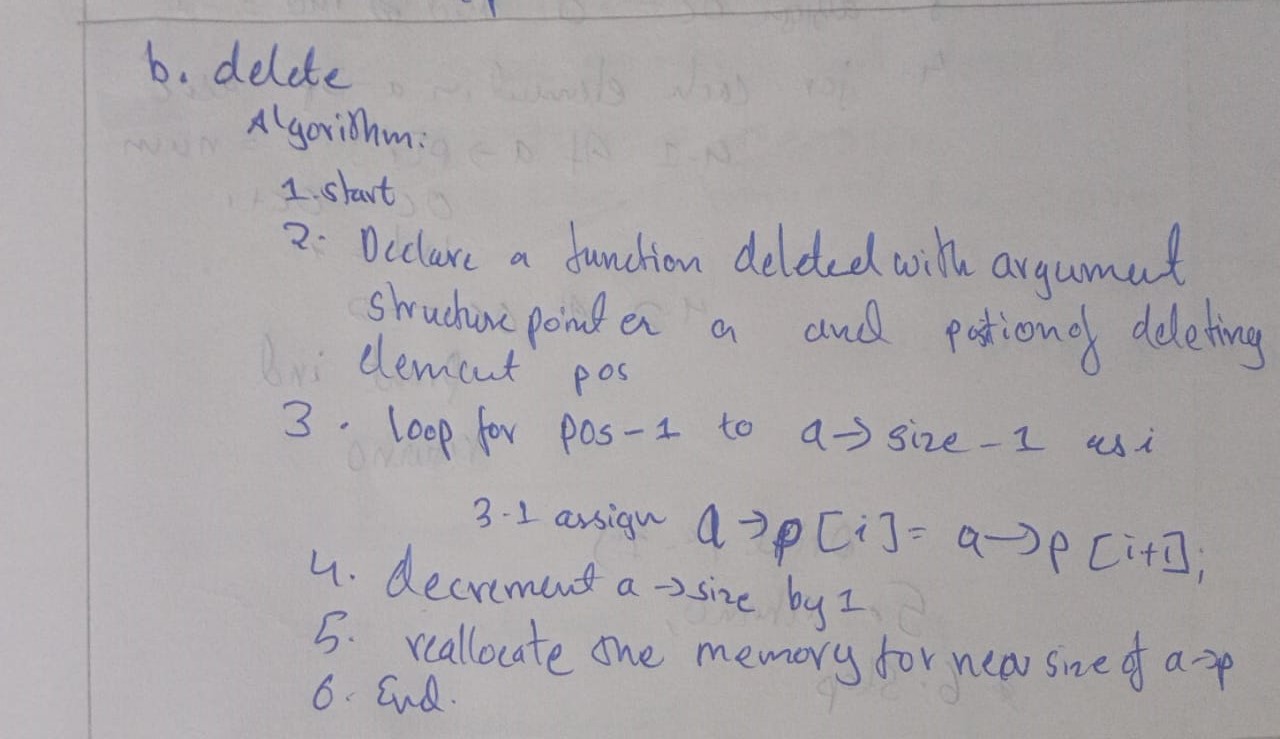 b. delete
Algorithm:
1. start
2. Declare a function deleted with argument
structure pointer a and postion of deleting
element pos
3. loop for pos-1 to a→size-1 as i
3.1 assign a→p[i]= a→p[i+1];
4. decrement a→size by 1
5. reallocate the memory for new size of a→p
6. End.